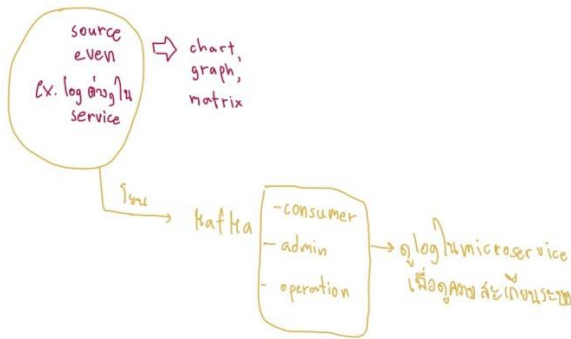 source
even
Ex. log ต่างๆใน
service
chart,
graph,
matrix
โยน
Kafka
-consumer
- admin
- operation
ดู log ใน microservice
เพื่อดูความ